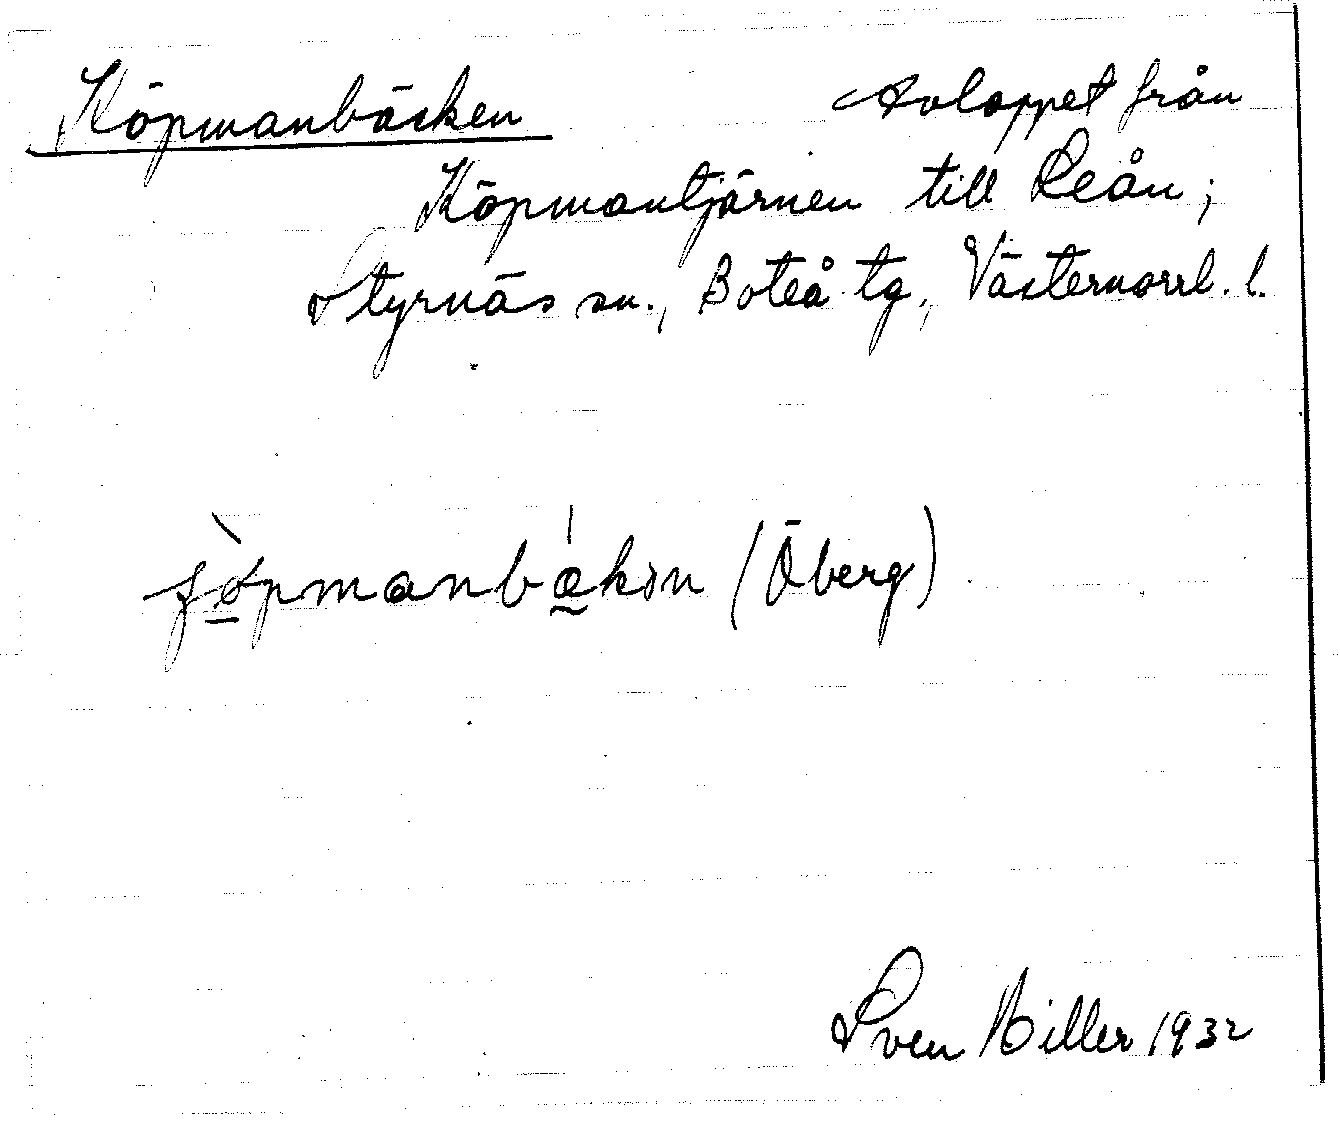 Köpmanbäcken Avloppet från
Köpmantjärnen till Leån;
Styrnäs sn., Boteå tg, Västernorrl. l.
(Öberg)
Sven Hiller 1932